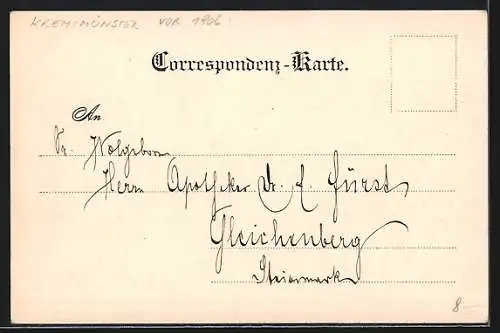 KREMSMÜNSTER VOR 1906
Correspondenz-Karte.
An
Sr. Wolgeborn
Herrn Apotheker Dr. E. Fürst
Gleichenberg
Steiermark
8-